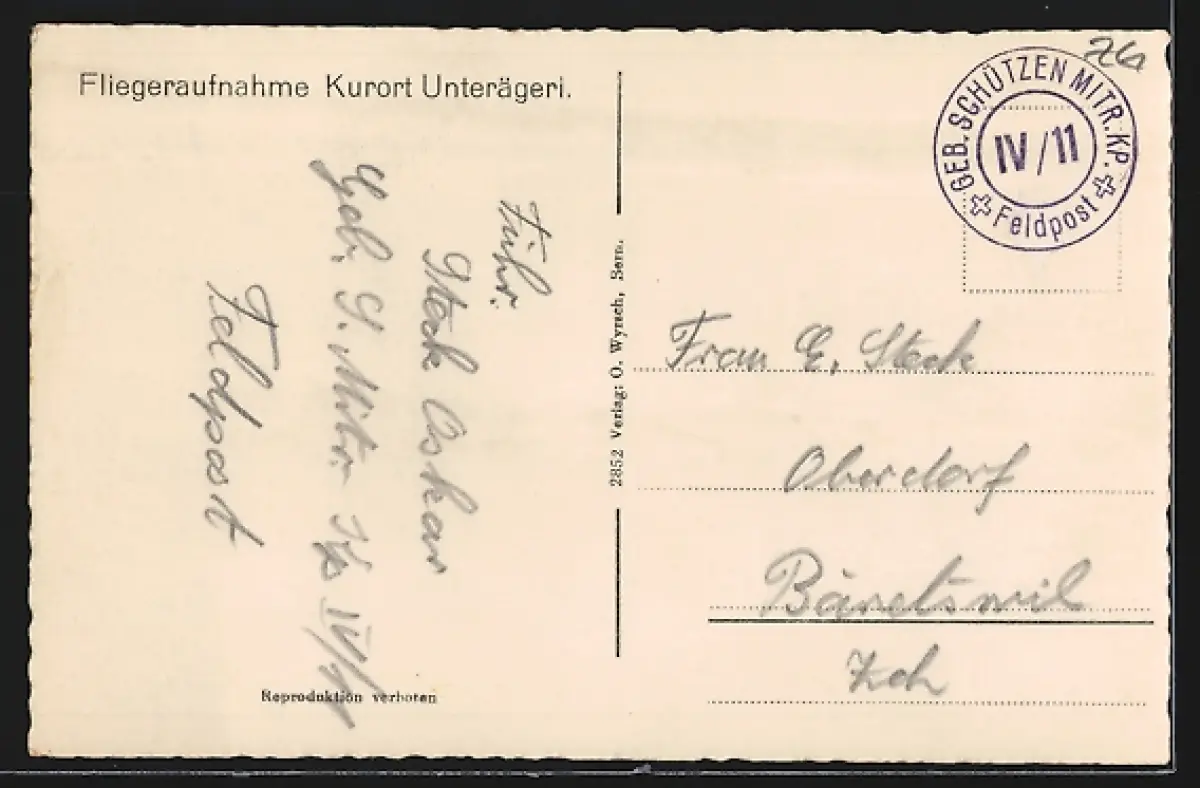 Fliegeraufnahme Kurort Unterägeri.
Führ.
Steck Oskar
Geb. S. Mitr. Kp IV/11
Feldpost
Reproduktion verboten
2852 Verlag: O. Wyrsch, Bern.
GEB. SCHÜTZEN MITR. KP.
IV/11
Feldpost
Frau E. Steck
Oberdorf
Bäretswil
Zch